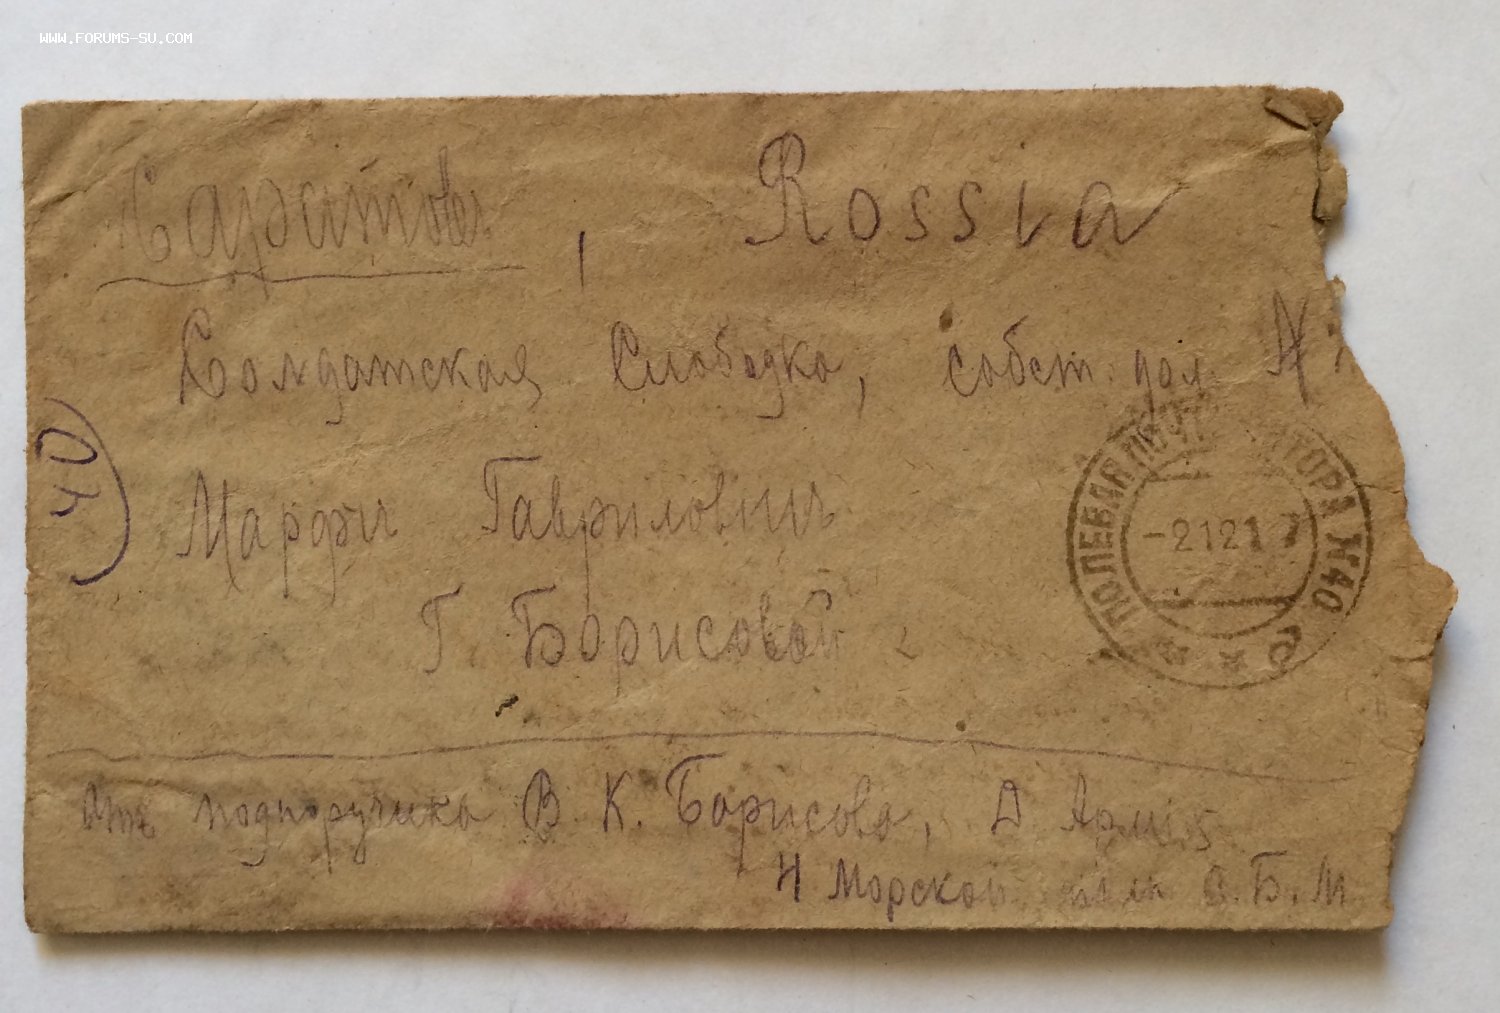 WWW.FORUMS-SU.COM
Саратовъ, Rossia
Солдатская Слободка, собст. дом
Марфи Гавриловни
Г. Борисовой
40
ПОЛЕВАЯ КОНТОРА №40
-21217
Отъ подпоручика В К. Борисова, Д Армія
4 Морской полк О.Б.М.